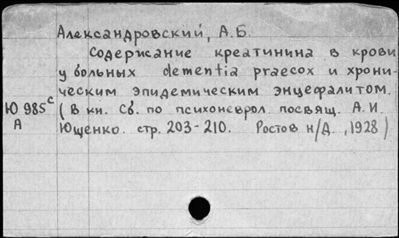 Александровский, А.Б.
Содерисание креатинина в крови
у больных dementia praecox и хрони-
ческим эпидемическим энцефалитом.
Ю 985с
А
(В кн. Сб. по психоневрол. посвящ. А.И.
Ющенко. стр. 203-210. Ростов н/Д., 1928)